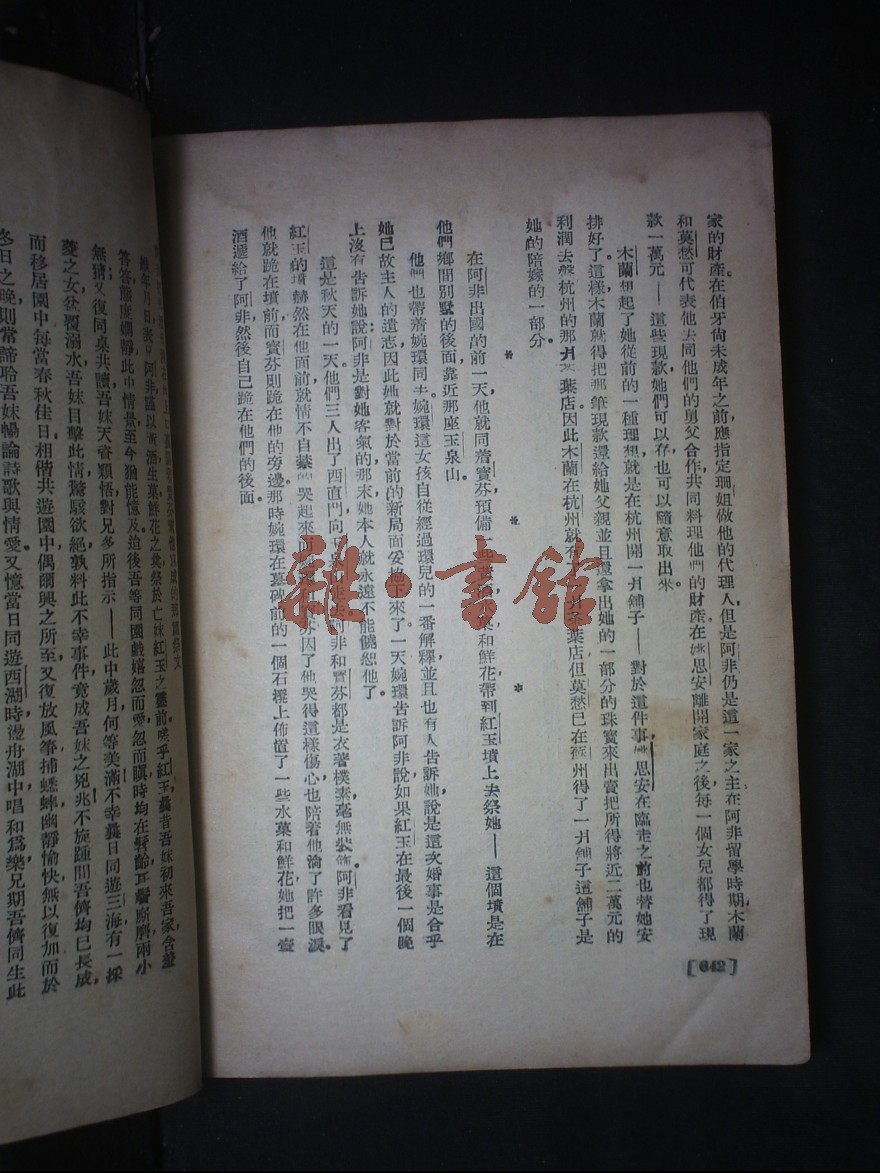 家的財產。在伯牙尙未成年之前應指定珊姐做他的代理人，但是阿非仍是這一家之主在阿非留學時期，木蘭
和莫愁可代表他去同他們的舅父合作，共同料理他們的財產。在姚思安離開家庭之後每一個女兒都得了現
款一萬元——這些現款她們可以存，也可以隨意取出來。
木蘭想起了她從前的一種理想就是在杭州開一爿舖子——對於這件事姚思安在臨走之前也替她安
排好了。這樣木蘭就得把那筆現款還給她父親，並且還拿出她的一部分的珠寶來出賣，把所得將近二萬元的
利潤去盤杭州的那爿茶葉店因此木蘭在杭州就有 葉店但莫愁已在蘇州得了一爿舖子這舖子是
她的陪嫁的一部分。
* * *
在阿非出國的前一天他就同着寶芬預備一些黃酒水菓和鮮花帶到紅玉墳上去祭她——這個墳是在
他們鄉間別墅的後面靠近那座玉泉山。
他們也帶着婉環同去。婉環這女孩自從經過環兒的一番解釋並且也有人告訴她說是這次婚事是合乎
她已故主人的遺志，因此她就對於當前的新局面妥協下來了。一天婉環告訴阿非說，如果紅玉在最後一個晚
上沒有告訴她說阿非是對她客氣的那末她本人就永遠不能饒恕他了。
這是秋天的一天，他們三人出了西直門向 去阿非和寶芬都是衣著樸素毫無裝飾。阿非看見了
紅玉的墳赫然在他面前就情不自禁的哭起來 芬因了他哭得這樣傷心也陪着他淌了許多眼淚。
他就跪在墳前而寶芬則跪在他的旁邊那時婉環在墓碑前的一個石檯上佈置了一些水菓和鮮花她把一壺
酒遞給了阿非然後自己跪在他們的後面。
[642]
維年月日表兄阿非謹以黃酒生菓鮮花之奠祭於亡妹紅玉之靈前。嗟乎紅玉曩昔吾妹初來吾家，含羞
答答，態度嫻靜此中情景至今猶能憶及。迨後吾等同園戲嬉忽而愛，忽而瞋時均在髫齡耳鬢廝磨兩小
無猜。又復同桌共讀吾妹天資穎悟對兄多所指示——此中歲月何等美滿不幸曩日同遊三海有一採
菱之女盆覆溺水吾妹目擊此情驚駭欲絕孰料此不幸事件竟成吾妹之兇兆不旋踵間吾儕均已長成
而移居園中每當春秋佳日相偕共遊園中偶爾興之所至又復放風箏捕蟋蟀幽靜愉快無以復加而於
冬日之晚則常諦聆吾妹暢論詩歌與情愛。又憶當日同遊西湖時，盪舟湖中唱和爲樂。兄期吾儕同生此
雜·書舘